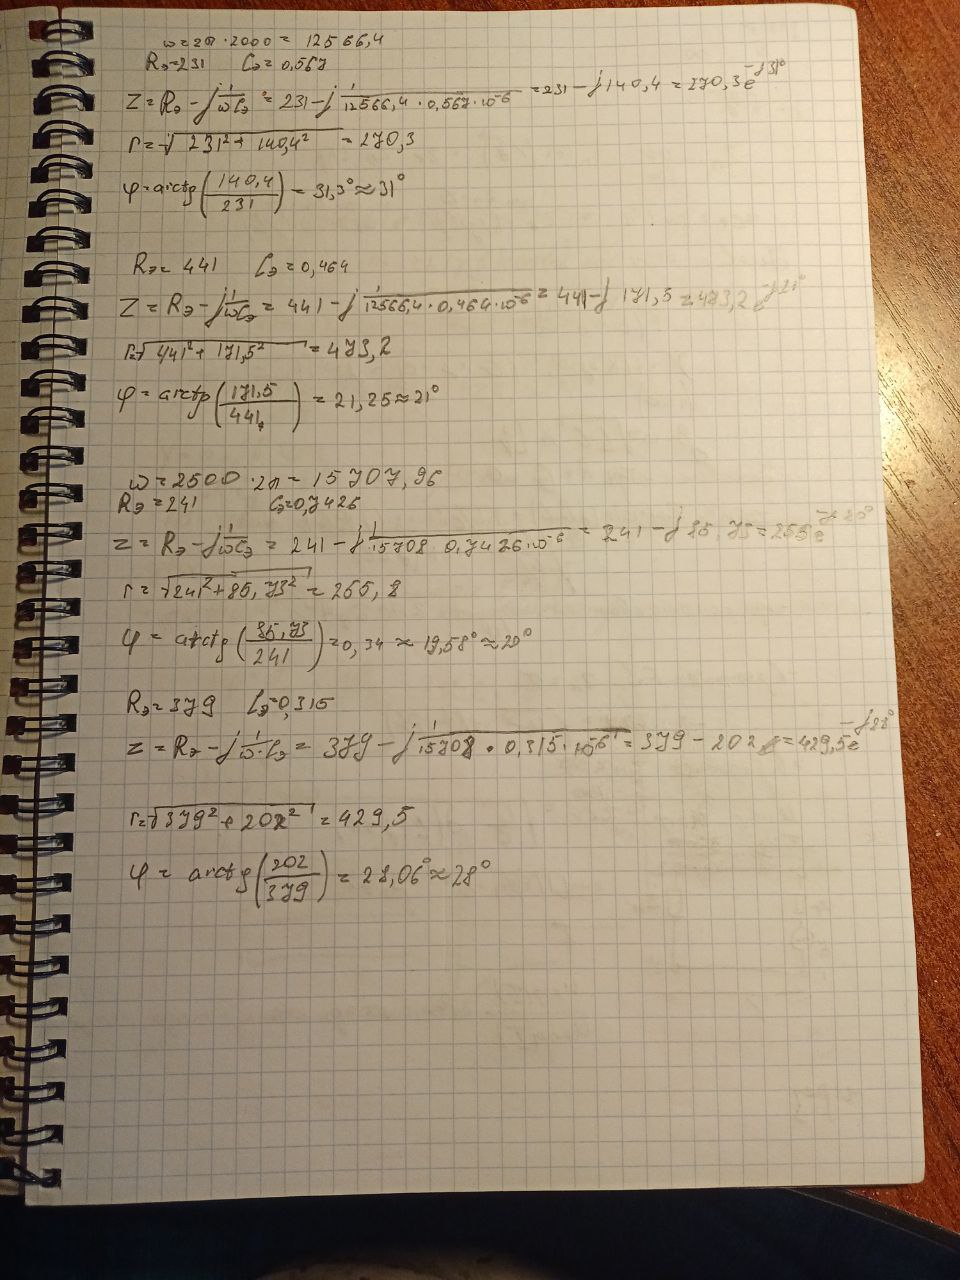 ω = 2π · 2000 = 12566,4
Rэ=231 Cэ=0,567
Z = Rэ - j 1/ωCэ = 231 - j 1/12566,4 · 0,567 · 10^-6 = 231 - j 140,4 = 270,3 e^-j31°
r = √231² + 140,4² = 270,3
φ = arctg(140,4/231) = 31,3° ≈ 31°
Rэ = 441 Cэ = 0,464
Z = Rэ - j 1/ωCэ = 441 - j 1/12566,4 · 0,464 · 10^-6 = 441 - j 171,5 = 473,2 e^-j21°
r=√441² + 171,5² = 473,2
φ = arctg(171,5/441) = 21,25 ≈ 21°
ω = 2500 · 2π = 15707,96
Rэ = 241 Cэ=0,7426
Z = Rэ - j 1/ωCэ = 241 - j 1/15708 · 0,7426 · 10^-6 = 241 - j 85,73 = 255 e^-j20°
r = √241² + 85,73² = 255,8
φ = arctg(85,73/241) = 0,34 ≈ 19,58° ≈ 20°
Rэ = 379 Cэ=0,315
Z = Rэ - j 1/ω·Cэ = 379 - j 1/15708 · 0,315 · 10^-6 = 379 - 202 = 429,5 e^-j28°
r=√379² + 202² = 429,5
φ = arctg(202/379) = 28,06° ≈ 28°